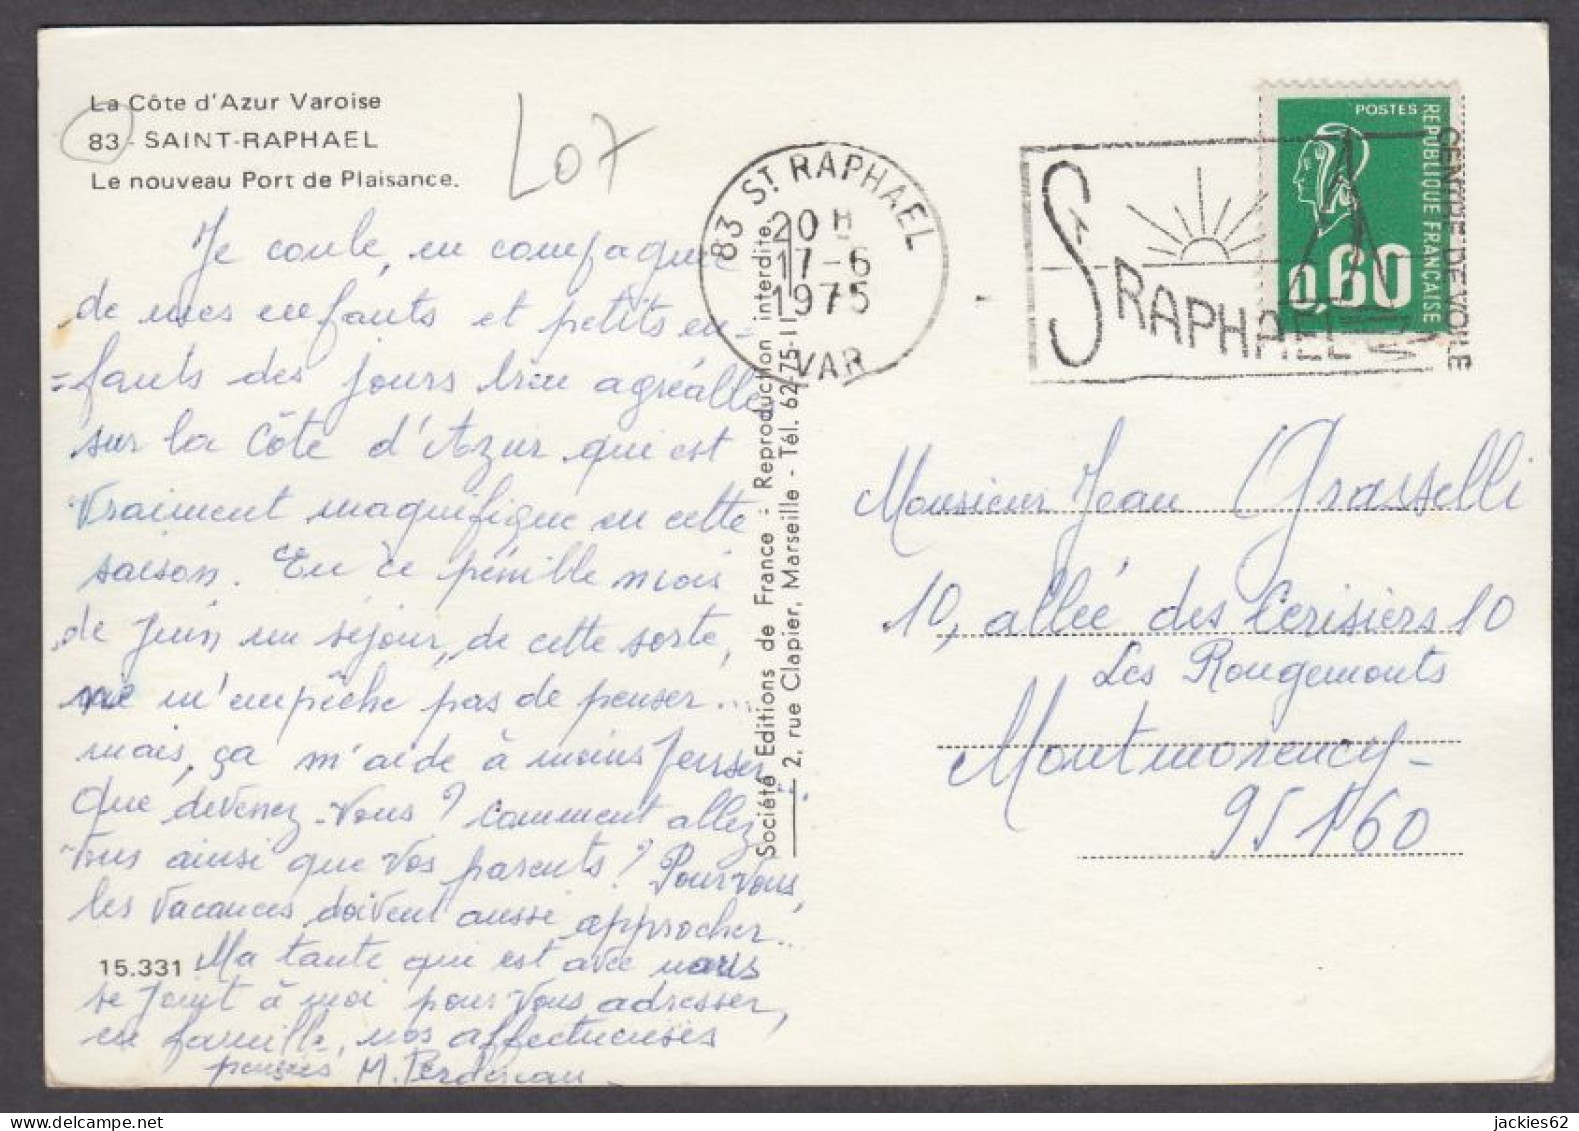 La Côte d'Azur Varoise
83 - SAINT-RAPHAEL
Le nouveau Port de Plaisance.
Lot
Je coule, en compagnie
de mes enfants et petits en=
=fants des jours bien agréables
sur la Côte d'Azur qui est
vraiment magnifique en cette
saison. En ce pénible mois
de Juin un séjour, de cette sorte,
ne m'empêche pas de penser...
mais, ça m'aide à moins penser
Que devenez-vous? comment allez
vous ainsi que vos parents? Pour vous,
les vacances doivent aussi approcher...
Ma tante qui est avec nous
se joint à moi pour vous adresser,
en famille, nos affectueuses
pensées M.
15.331
Société Editions de France - Reproduction interdite.
2, rue Clapier, Marseille - Tél. 62-75-11
83 ST RAPHAEL
20 H
17-6
1975
VAR
ST RAPHAEL
VAR
CENTRE DE VOILE
POSTES
REPUBLIQUE FRANÇAISE
0,60
Monsieur Jean Grasselli
10, allée des Cerisiers 10
Les Rougemonts
Montmorency-
95160
jackies62